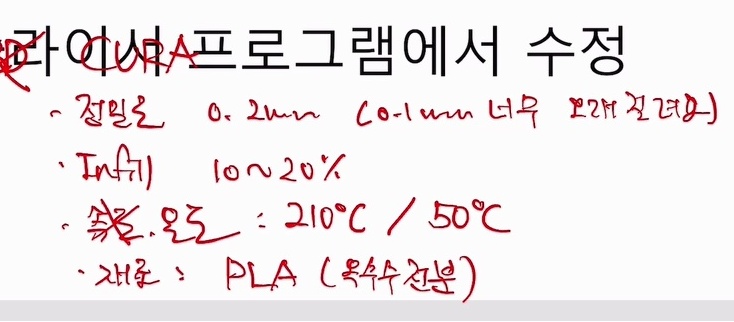 라이서 프로그램에서 수정
CURA
· 정밀도 0.2mm (0.1mm 너무 오래 걸려요)
· Infill 10~20%
· 온도 : 210℃ / 50℃
· 재료 : PLA (옥수수 전분)